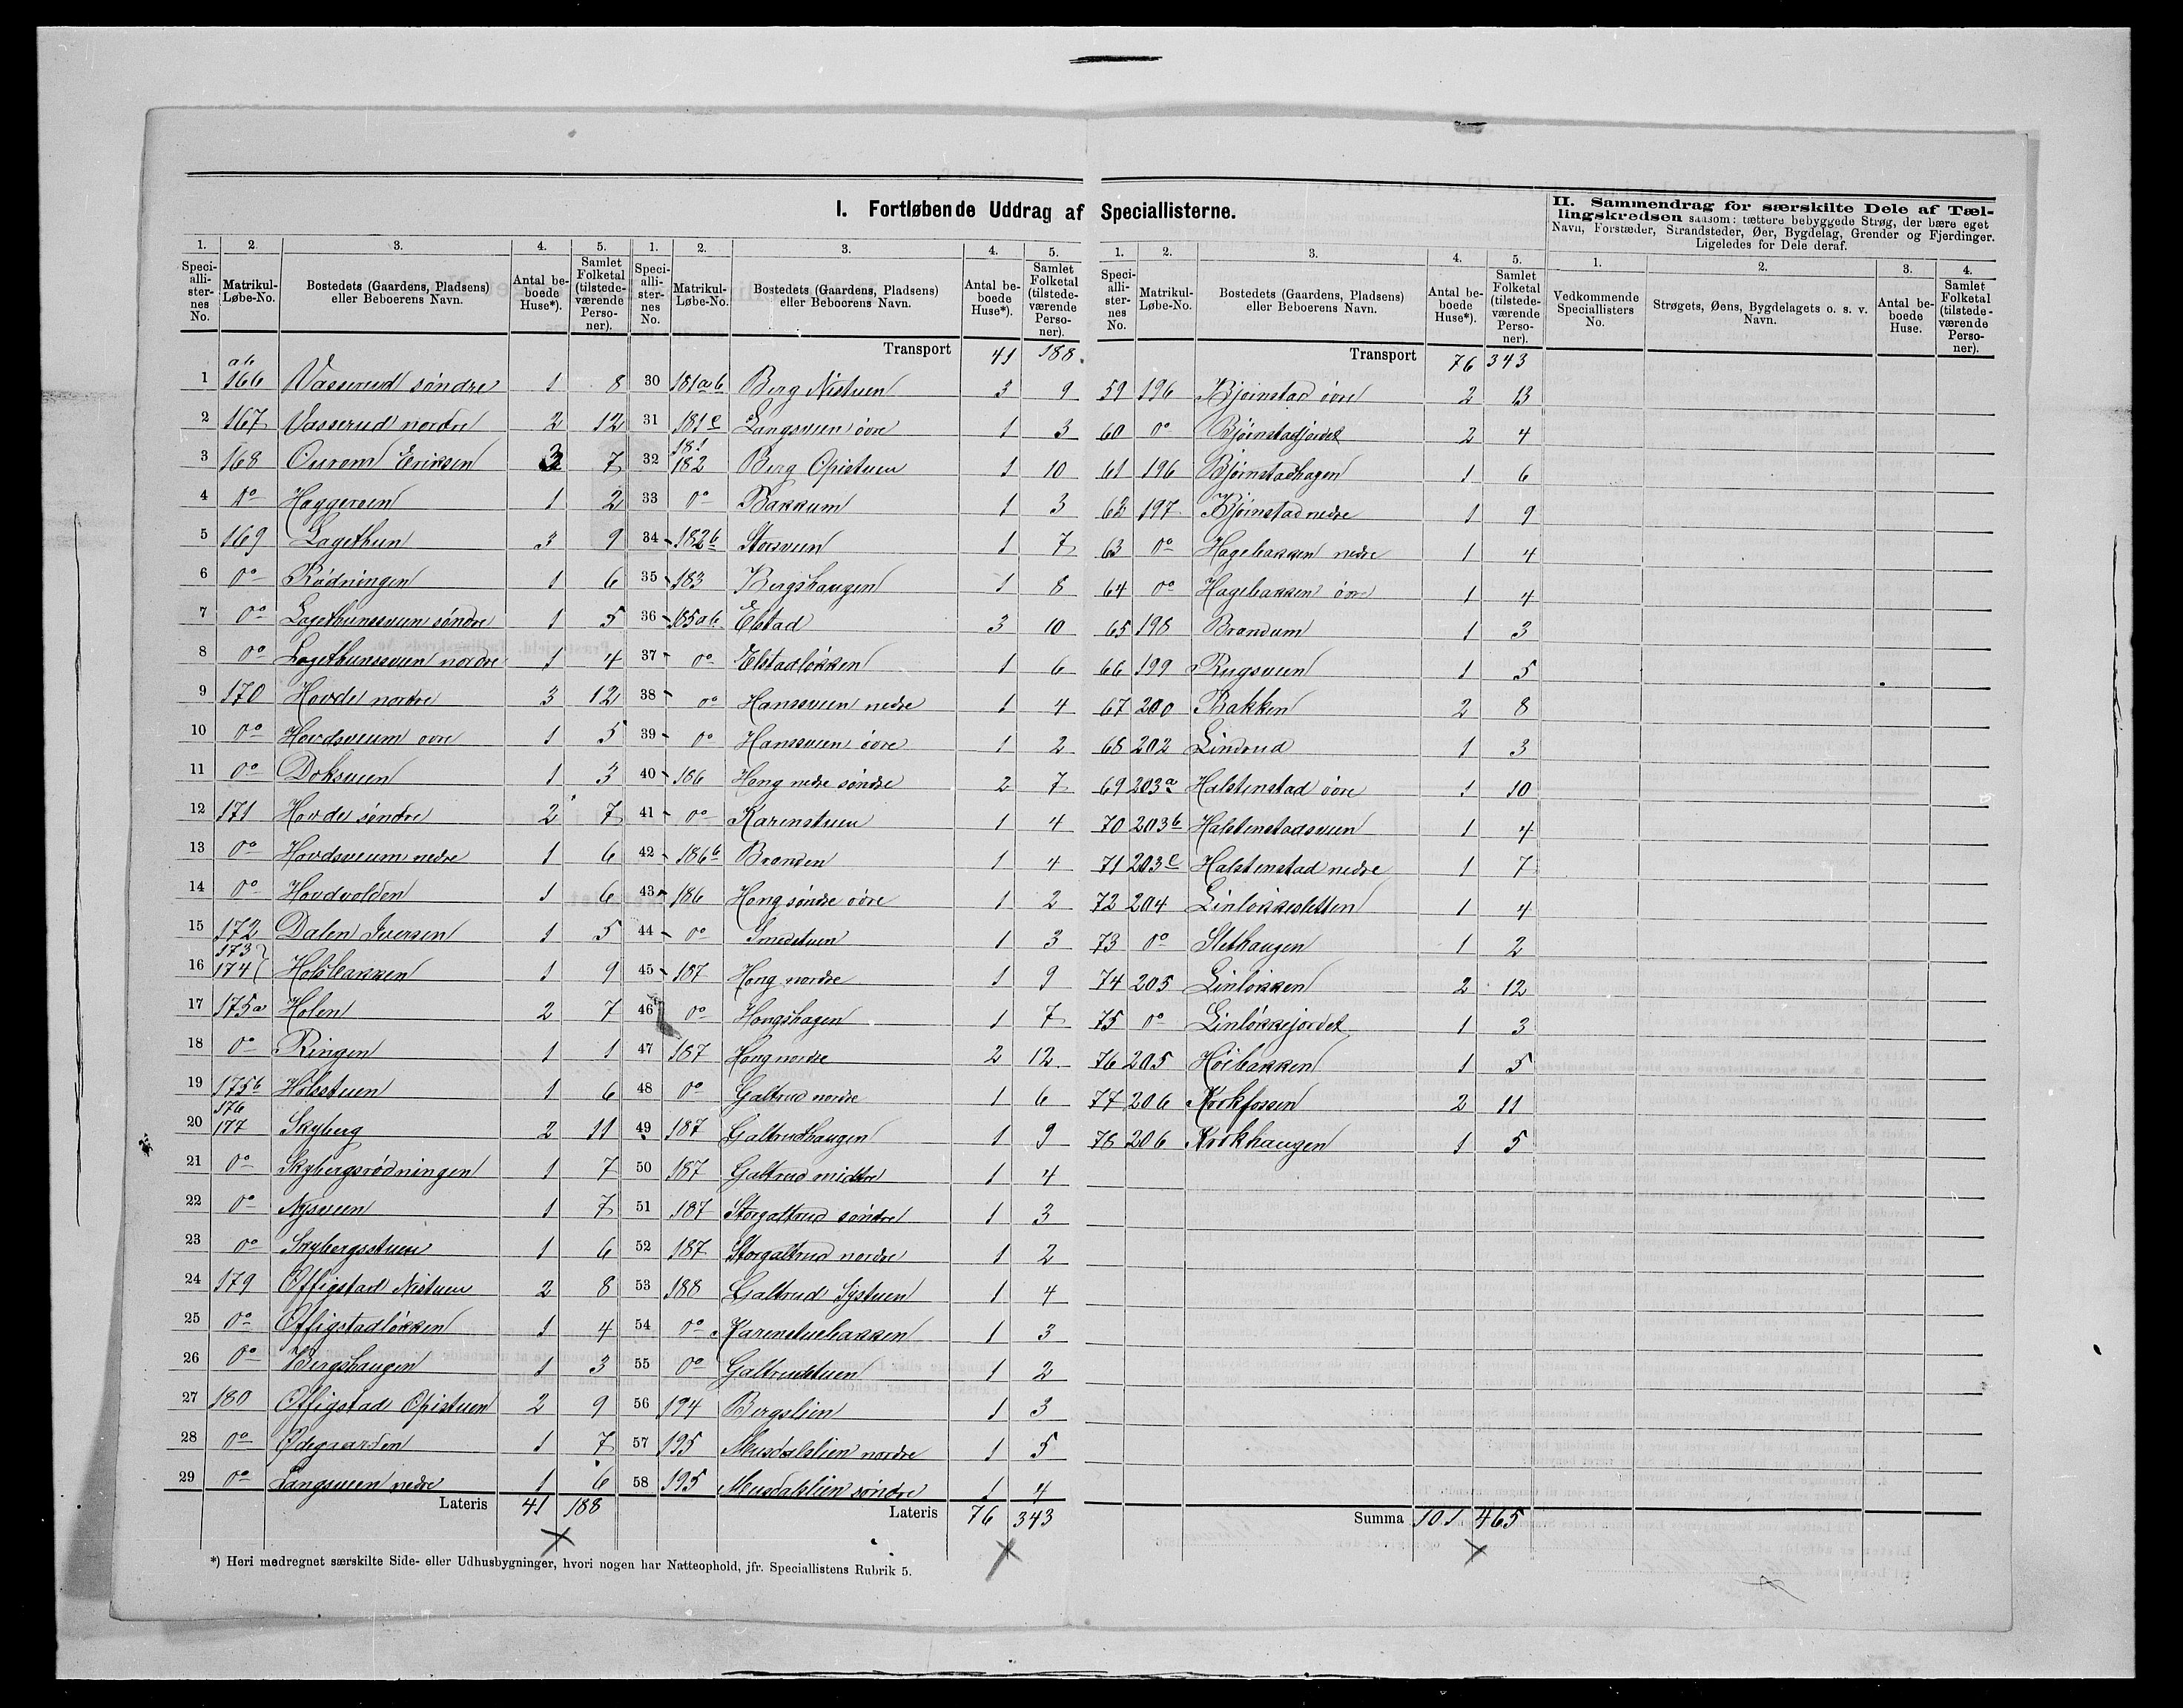 I. Fortløbende Uddrag af Speciallisterne.
1. 2. 3. 4. 5.
Speciallisternes No. Matrikul-Løbe-No. Bostedets (Gaardens, Pladsens) eller Beboerens Navn. Antal beboede Huse*). Samlet Folketal (tilstedeværende Personer).
1 166 ab Vasserud søndre 1 8
2 167 Vasserud nordre 2 12
3 168 Eriksen 3 7
4 1o Haggeroen 1 2
5 169 Lagethun 3 9
6 0o Rødningen 1 6
7 0o Lagethunssveen søndre 1 5
8 0o Lagethunssveen nordre 1 4
9 170 Hovde nordre 3 12
10 0o Hovdsveum øvre 1 5
11 0o Doksveen 1 3
12 171 Hovde søndre 2 7
13 0o Hovdsveum nedre 1 6
14 0o Hovdvolden 1 6
15 172 Dalen Iversen 1 5
16 173 174 Holsbakken 1 9
17 175a Holen 2 7
18 0o Ringen 1 1
19 175b Holsstuen 1 6
20 176 177 Skyberg 2 11
21 0o Skybergsrødningen 1 7
22 0o Nysveen 1 7
23 0o Skybergsstuen 1 6
24 179 Offigstad Nistuen 2 8
25 0o Offigstadløkken 1 4
26 0o Bergshaugen 1 3
27 180 Offigstad Opistuen 2 9
28 0o Ødegaarden 1 7
29 0o Langsveen nedre 1 6
Lateris 41 188
1. 2. 3. 4. 5.
Speciallisternes No. Matrikul-Løbe-No. Bostedets (Gaardens, Pladsens) eller Beboerens Navn. Antal beboede Huse*). Samlet Folketal (tilstedeværende Personer).
Transport 41 188
30 181ab Berg Nistuen 3 9
31 181c Langsveen øvre 1 3
32 181 182 Berg Opistuen 1 10
33 0o Bakkum 1 3
34 182b Storsveen 1 7
35 183 Bergshaugen 1 8
36 185ab Elstad 3 10
37 0o Elstadløkken 1 6
38 0o Hanssveen nedre 1 4
39 0o Hanssveen øvre 1 2
40 186 Hong nedre søndre 2 7
41 0o Karenstuen 1 4
42 186b Branden 1 4
43 186 Hong søndre øvre 1 2
44 0o Smedstuen 1 3
45 187 Hong nordre 1 9
46 0o Hongshagen 1 7
47 187 Hong nordre 2 12
48 0o Galtrud nordre 1 6
49 187 Galtrudhaugen 1 9
50 187 Galtrud midtre 1 4
51 187 Storgaltrud søndre 1 3
52 187 Storgaltrud nordre 1 2
53 188 Galtrud Systuen 1 4
54 0o Karenstuebakken 1 3
55 0o Galtrudstuen 1 2
56 194 Bergslien 1 3
57 195 Musdalslien nordre 1 5
58 195 Musdalslien søndre 1 4
Lateris 76 343
*) Heri medregnet særskilte Side- eller Udhusbygninger, hvori nogen har Natteophold, jfr. Speciallistens Rubrik 5.
1. 2. 3. 4. 5.
Speciallisternes No. Matrikul-Løbe-No. Bostedets (Gaardens, Pladsens) eller Beboerens Navn. Antal beboede Huse*). Samlet Folketal (tilstedeværende Personer).
Transport 76 343
59 196 Bjørnstad øvre 2 13
60 0o Bjørnstadjordet 2 4
61 196 Bjørnstadhagen 1 6
62 197 Bjørnstad nedre 1 9
63 0o Hagebakken nedre 1 4
64 0o Hagebakken øvre 1 4
65 198 Brandum 1 3
66 199 Rugsveen 1 5
67 200 Bakken 2 8
68 202 Lindrud 1 3
69 203a Halstenstad øvre 1 10
70 203b Halstenstadsveen 1 4
71 203c Halstenstad nedre 1 7
72 204 Linløkkesletten 1 4
73 0o Slethaugen 1 2
74 205 Linløkken 2 12
75 0o Linløkkejordet 1 3
76 205 Høibakken 1 5
77 206 Krokfossen 2 11
78 206 Krokhaugen 1 5
Summa 101 465
II. Sammendrag for særskilte Dele af Tællingskredsen saasom: tættere bebyggede Strøg, der bære eget Navn, Forstæder, Strandsteder, Øer, Bygdelag, Grender og Fjerdinger. Ligeledes for Dele deraf.
1. 2. 3. 4.
Vedkommende Speciallisters No. Strøgets, Øens, Bygdelagets o. s. v. Navn. Antal beboede Huse. Samlet Folketal (tilstedeværende Personer).